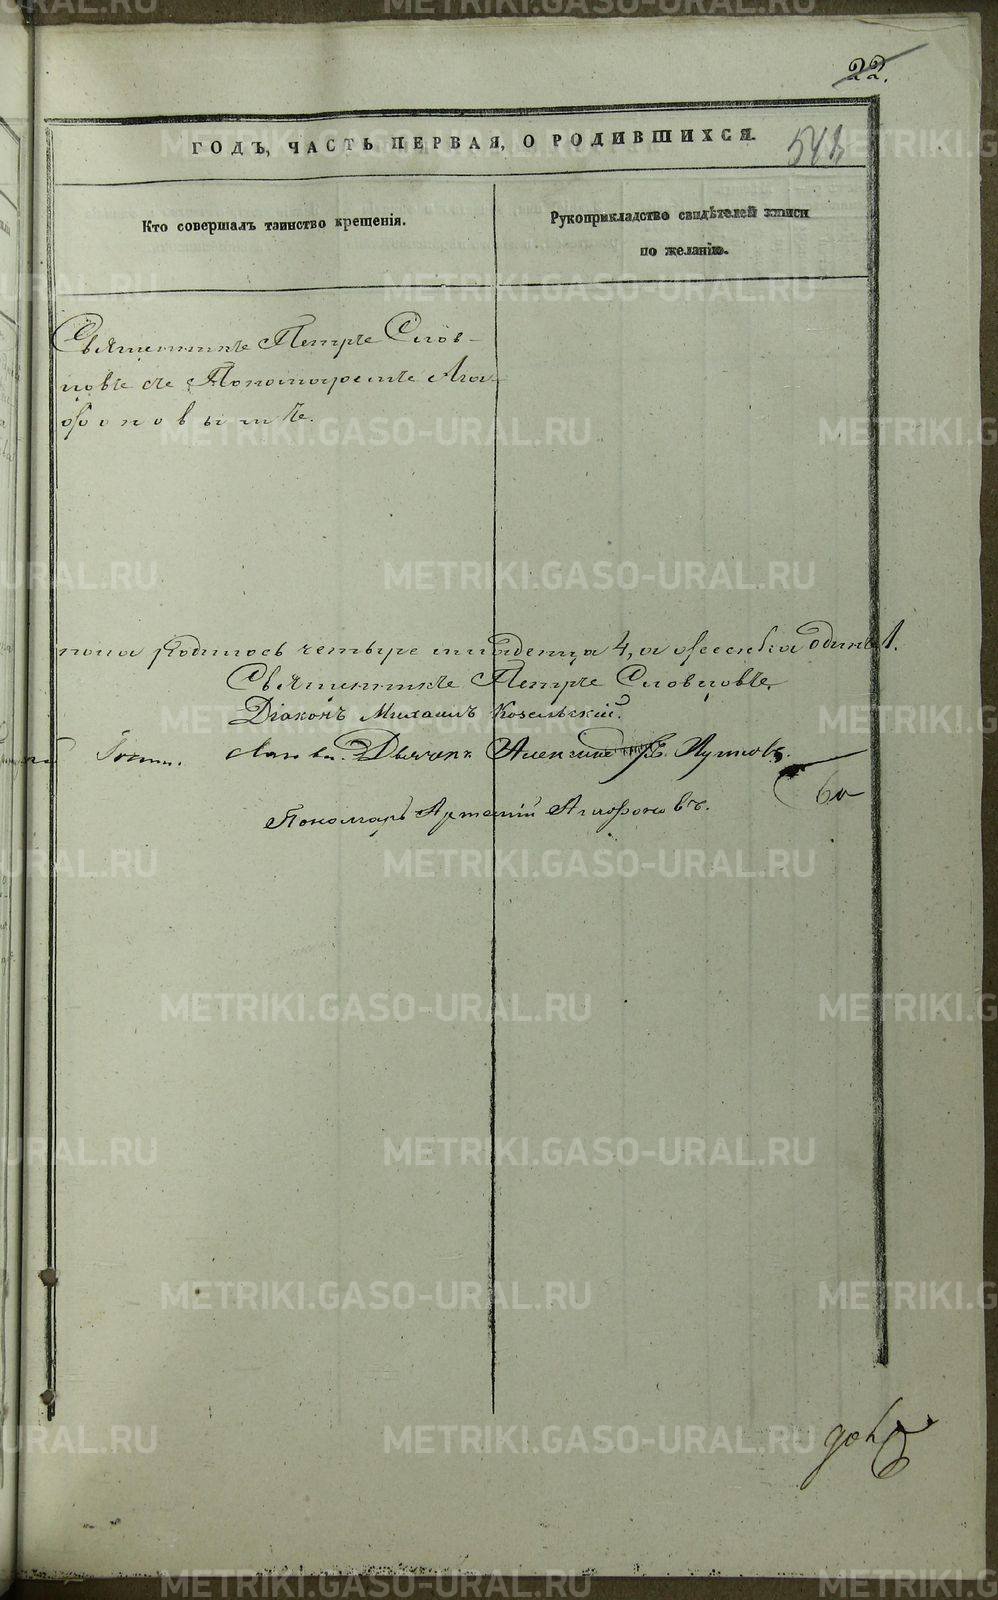 22.
ГОДЪ, ЧАСТЬ ПЕРВАЯ, О РОДИВШИХСЯ.
541
Кто совершалъ таинство крещенія.
Рукоприкладство свидѣтелей записи
по желанію.
Священникъ Петръ Слов-
цовъ съ Пономаремъ Ага-
фоновымъ.
пола родилось четыре младенца 4, а женска одинъ 1.
Священникъ Петръ Словцовъ.
Діаконъ Михаилъ Козельскій.
Дьячекъ Александръ Путковъ.
Пономарь Артемій Агафоновъ.
METRIKI.GASO-URAL.RU